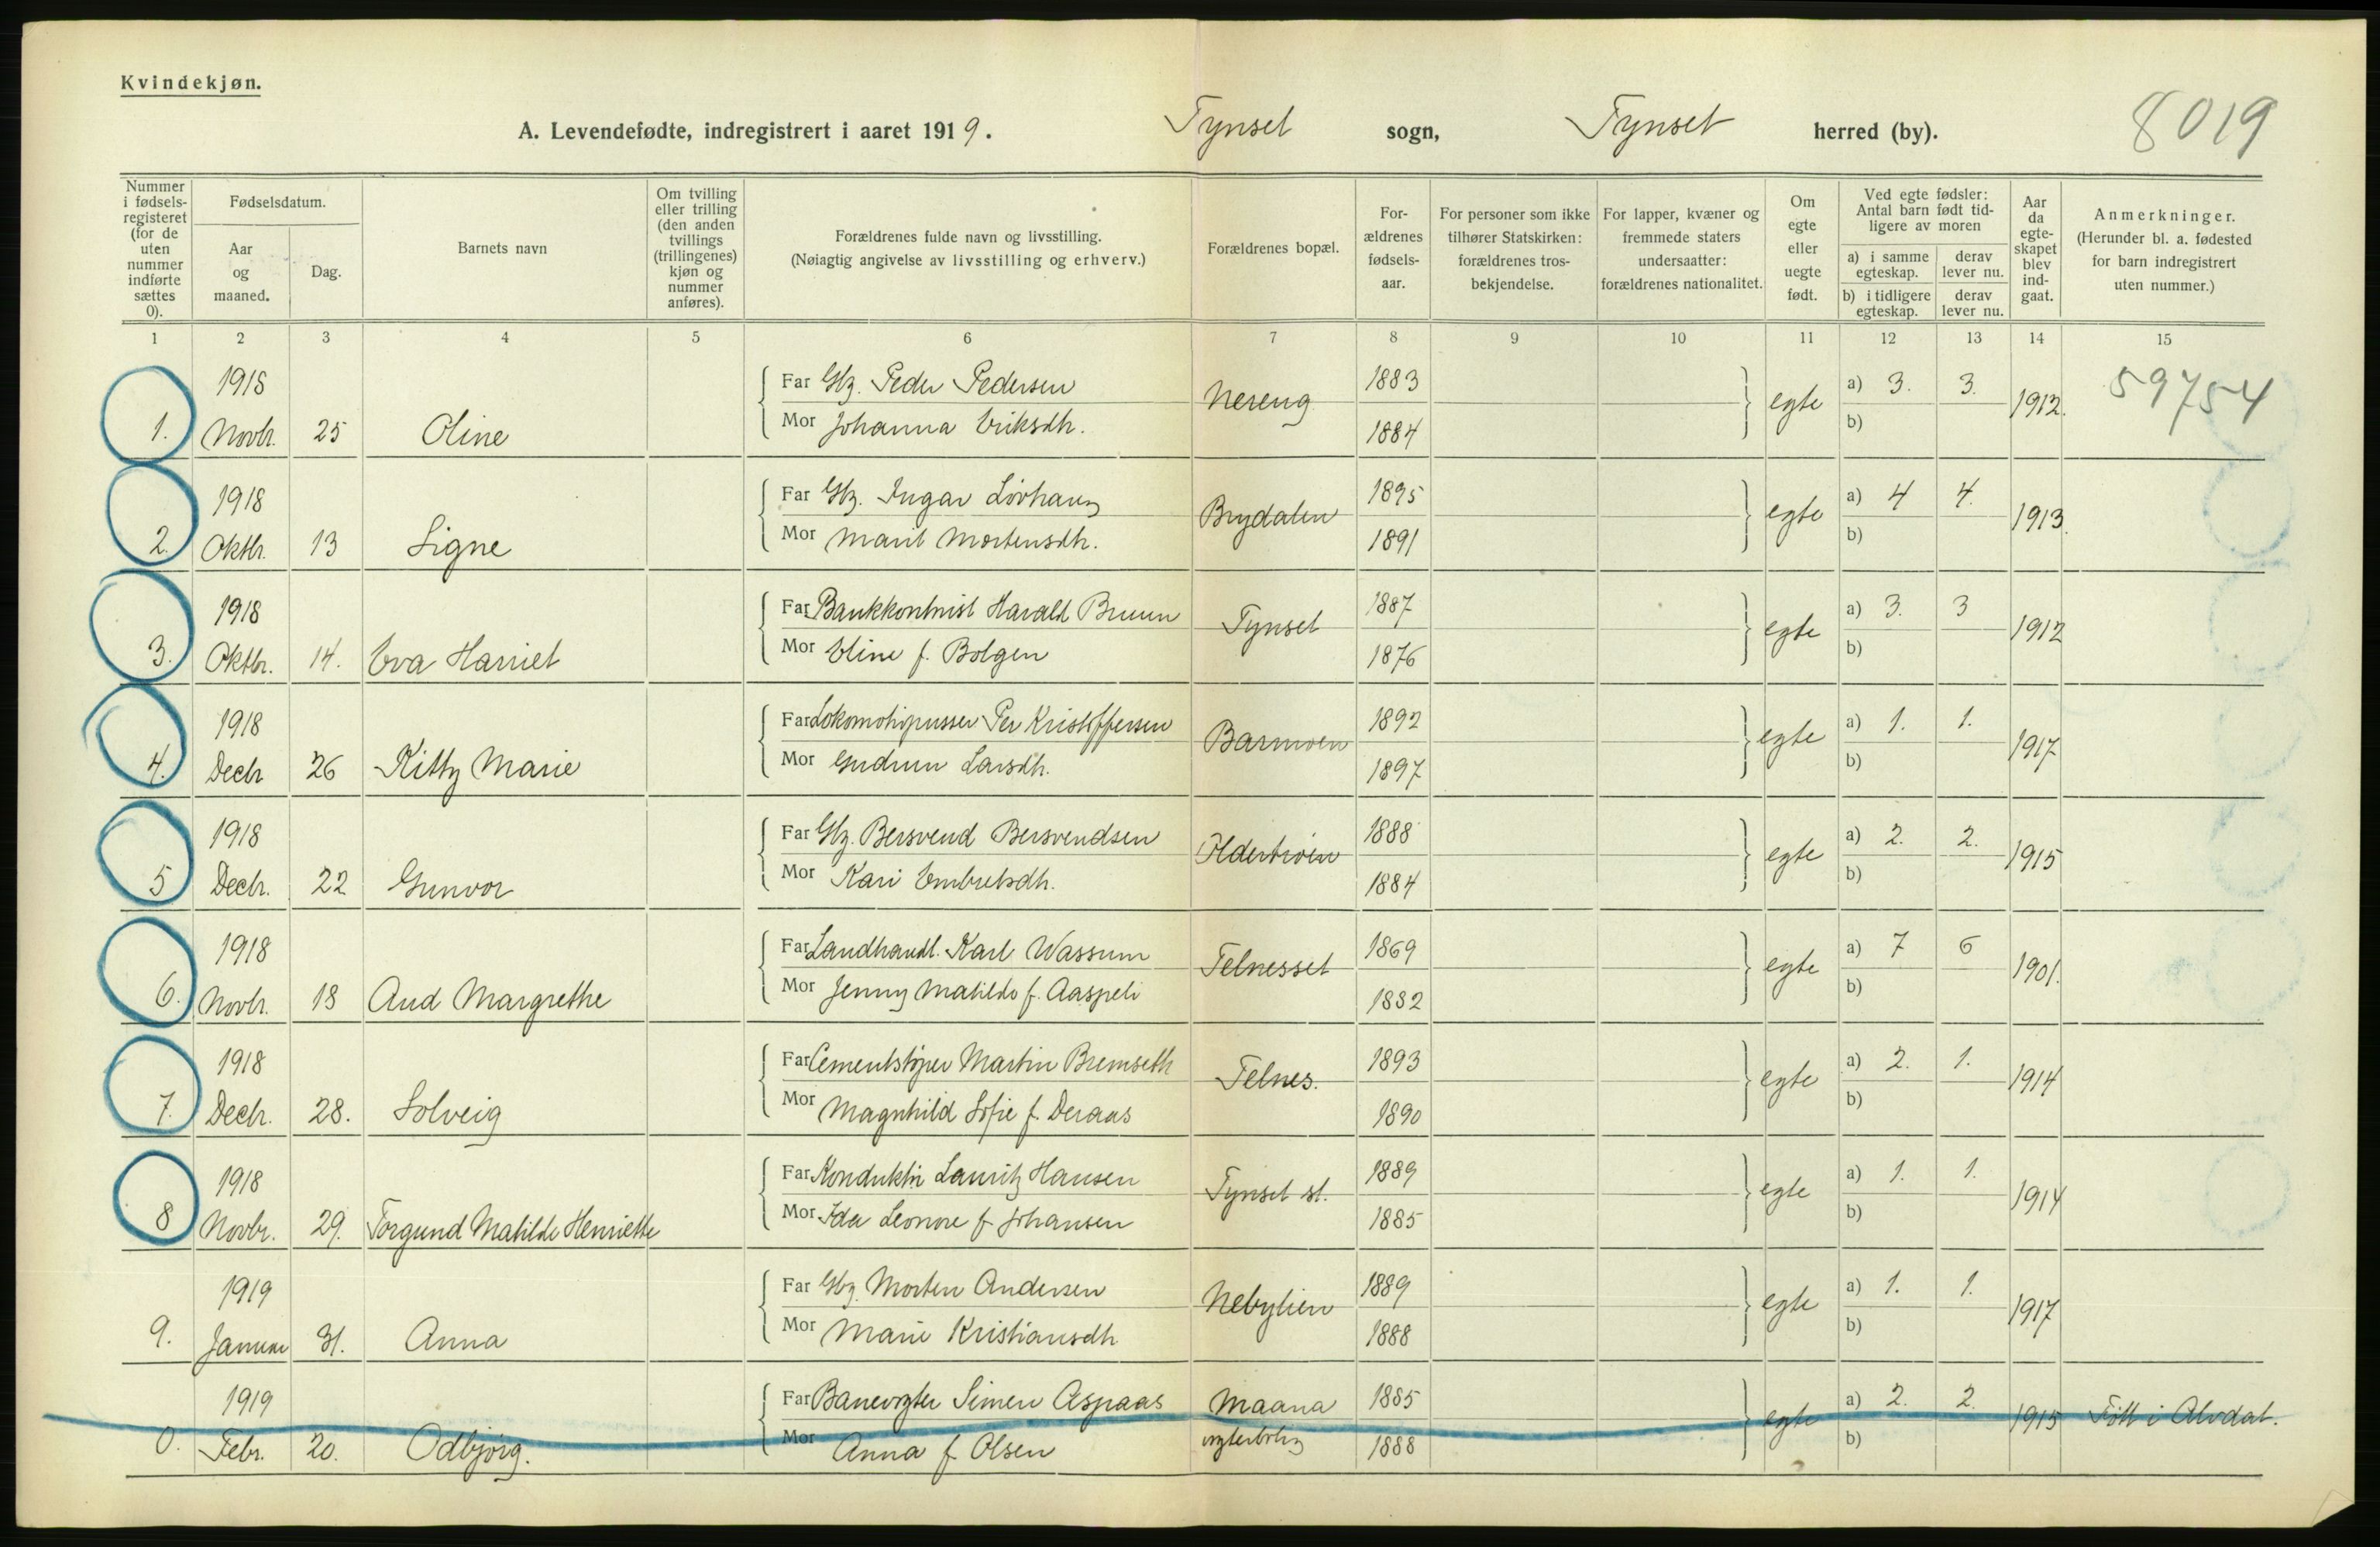 Kvindekjøn.
A. Levendefødte, indregistrert i aaret 1919. Tynset sogn, Tynset herred (by). 8019
Nummer i fødselsregisteret (for de uten nummer indførte sættes 0).
Fødselsdatum.
Aar og maaned.
Dag.
Barnets navn
Om tvilling eller trilling (den anden tvillings (trillingenes) kjøn og nummer anføres).
Forældrenes fulde navn og livsstilling.
(Nøiagtig angivelse av livsstilling og erhverv.)
Forældrenes bopæl.
Forældrenes fødselsaar.
For personer som ikke tilhører Statskirken: forældrenes trosbekjendelse.
For lapper, kvæner og fremmede staters undersaatter: forældrenes nationalitet.
Om egte eller uegte født.
Ved egte fødsler: Antal barn født tidligere av moren
a) i samme egteskap. derav lever nu.
b) i tidligere egteskap. derav lever nu.
Aar da egteskapet blev indgaat.
Anmerkninger.
(Herunder bl. a. fødested for barn indregistrert uten nummer.)
1 2 3 4 5 6 7 8 9 10 11 12 13 14 15
1918 Far Gbr. Peder Pedersen 1883 a) 3. 3. 59754
1. Novbr. 25 Oline Mor Johanna Eriksdtr. Nereng 1884 egte b) 1912.
1918 Far Gbr. Ingar Lövhaug 1895 a) 4 4.
2. Oktbr. 13 Signe Mor Marit Mortensdtr. Brydalen 1891 egte b) 1913.
1918 Far Bankkontorist Harald Bruun 1887 a) 3. 3
3. Oktbr. 14. Eva Harriet Mor Eline f. Bolgen Tynset 1876 egte b) 1912
1918 Far Lokomotivpusser Per Kristoffersen 1892 a) 1. 1.
4. Decbr 26 Kitty Marie Mor Gudrun Larsdtr. Barmoen 1897 egte b) 1917
1918 Far Gbr. Bersvend Bersvendsen 1888 a) 2. 2.
5 Decbr. 22 Gunvor Mor Kari Embretsdtr. 1884 egte b) 1915
1918 Far Landhandl. Karl Wassum 1869 a) 7 6
6. Novbr. 18 Aud Margrethe Mor Jenny Matilde f. Aaspeli Telnesset 1882 egte b) 1901.
1918 Far Cementstöper Martin Bremseth 1893 a) 2. 1.
7. Decbr. 28. Solveig Mor Magnhild Sofie f. Deraas Telnes. 1890 egte b) 1914
1918 Far Konduktör Lauritz Hansen 1889 a) 1. 1.
8 Novbr. 29. Torgund Matilde Henriette Mor Ida Leonore f. Johansen Tynset st. 1885 egte b) 1914
1919 Far Gbr. Morten Andersen 1889 a) 1. 1.
9. Januar 31. Anna Mor Marie Kristiansdtr Nebylien 1888 egte b) 1917
1919 Far Banevogter Simen Aspaas Maana 1885 a) 2. 2.
0. Febr. 20. Odbjörg. Mor Anna f. Olsen vogterbolig 1888 egte b) 1915 Fött i Alvdal.